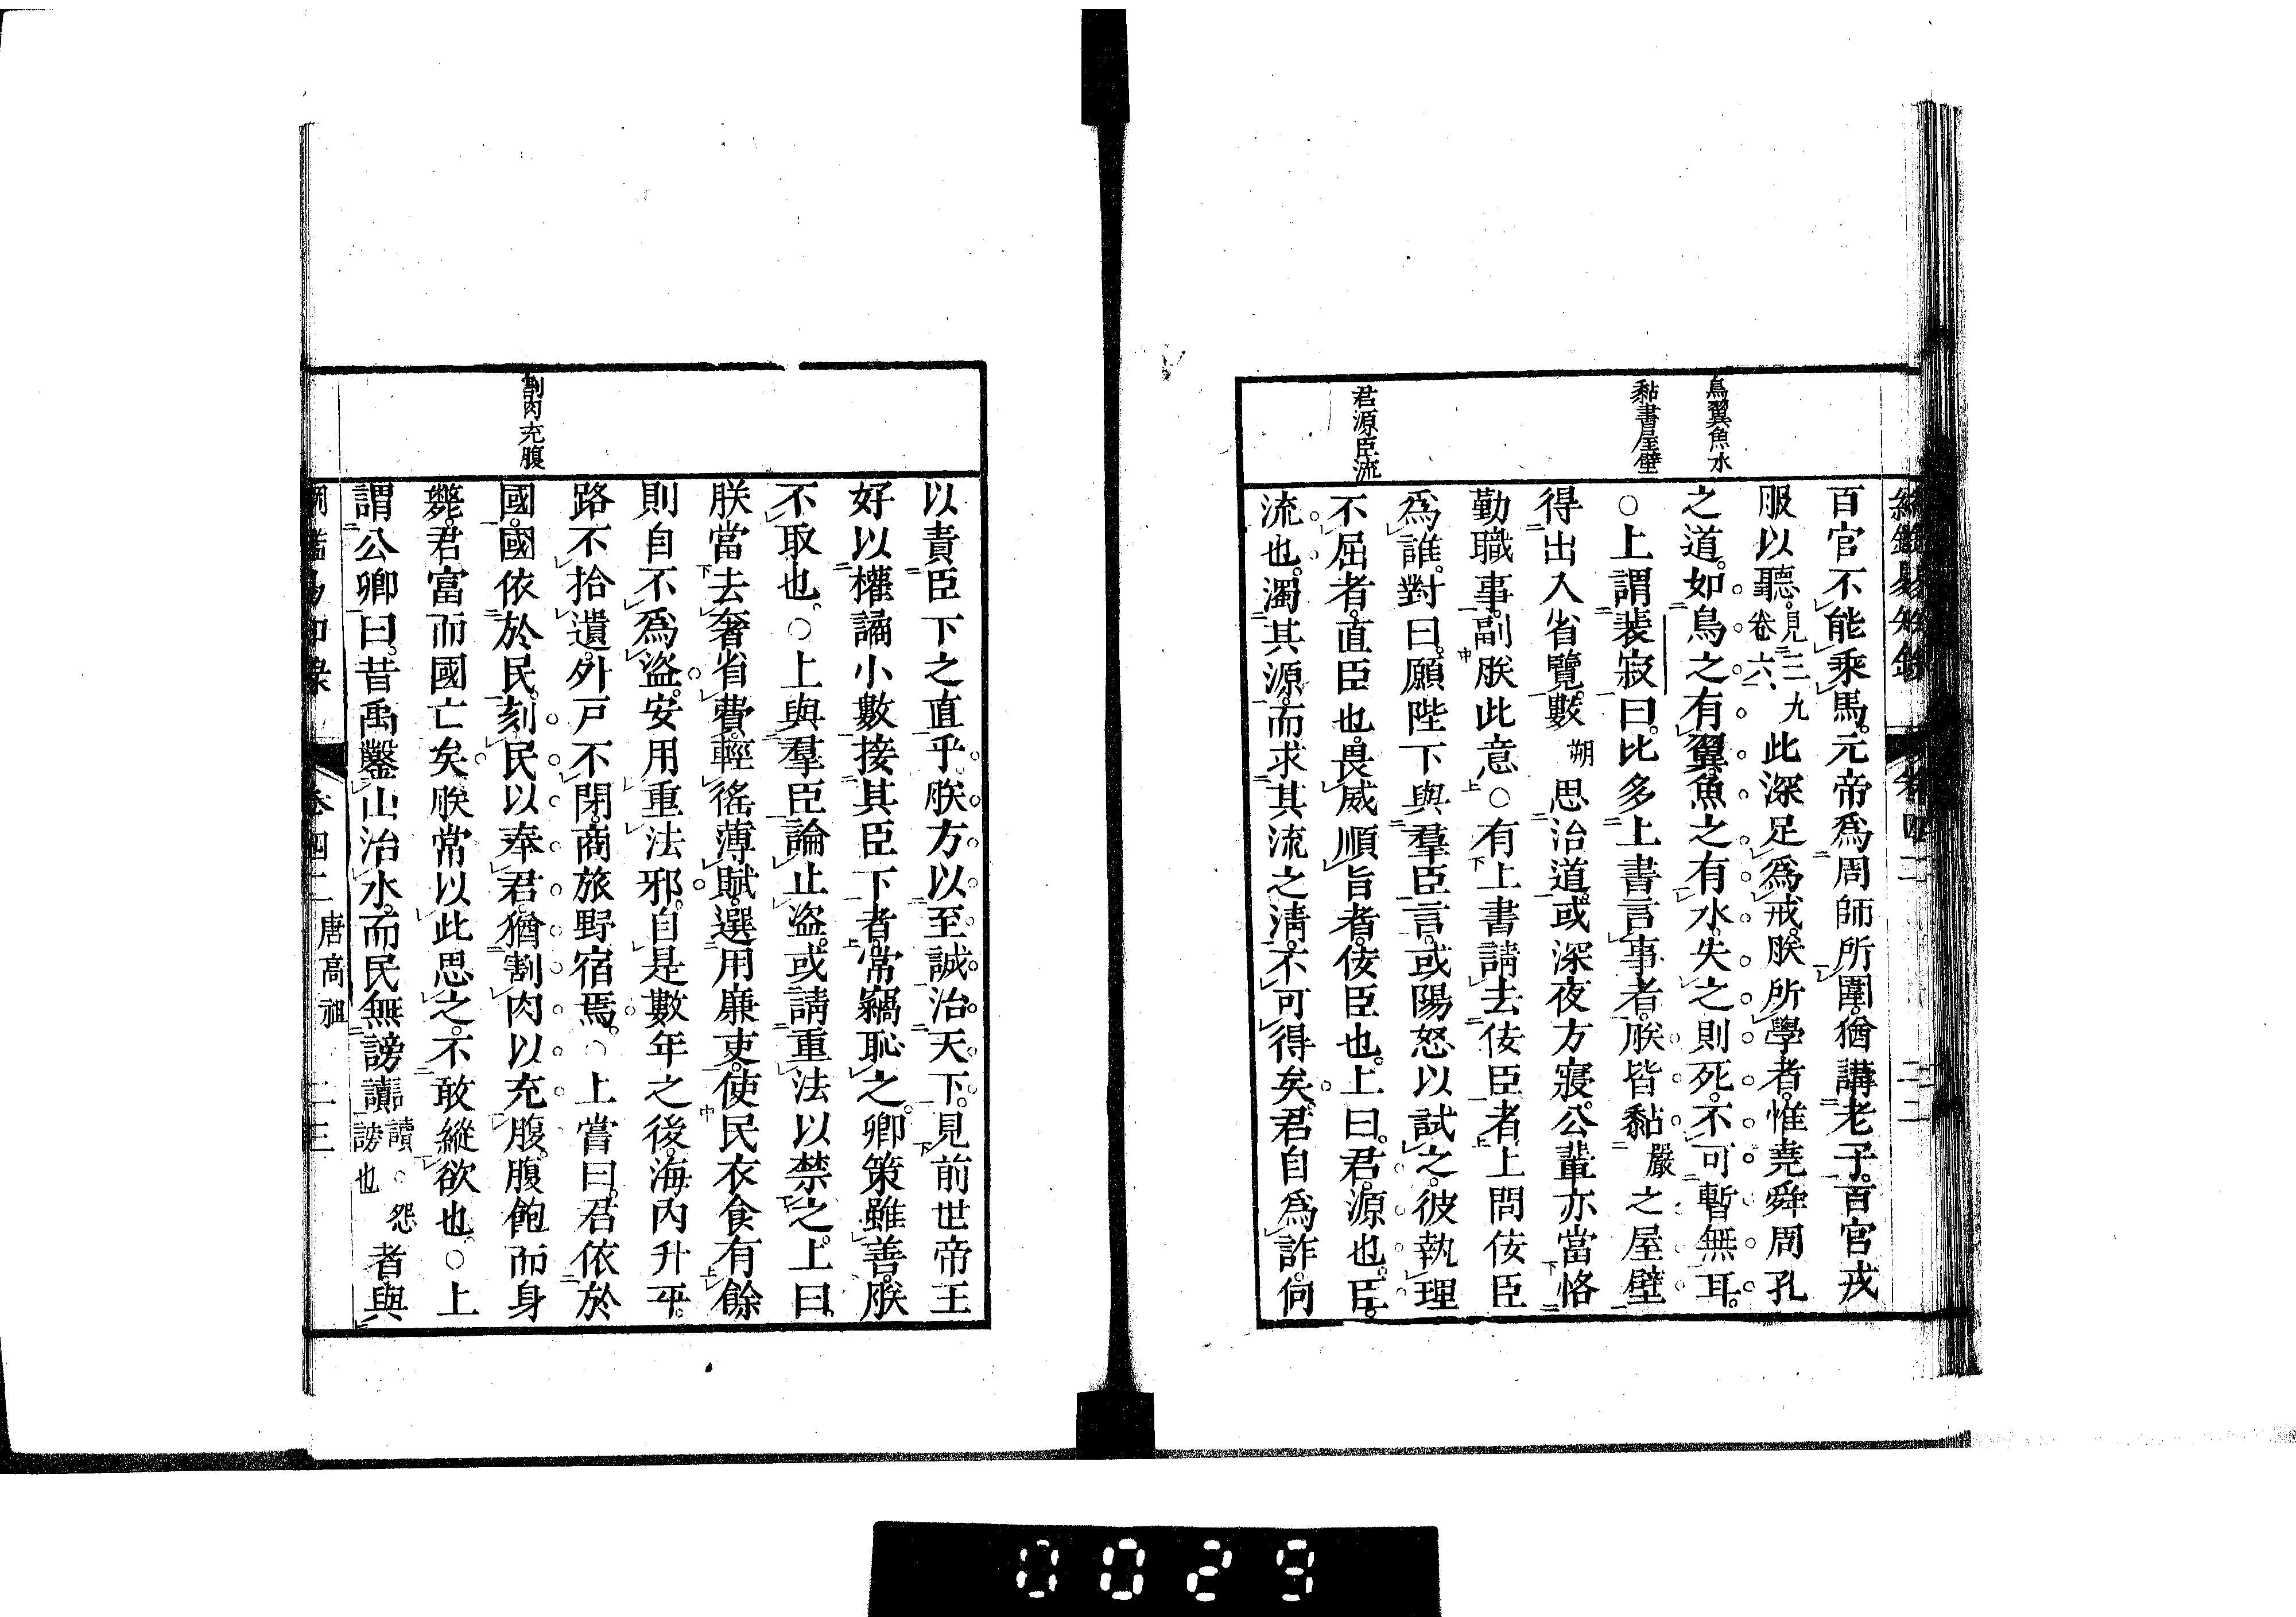 鳥翼魚水
黏書屋壁
君源臣流
百官不能乘馬。元帝爲周師所圍。猶講老子。百官戎
服以聽。見三九卷六、此深足爲戒。朕所學者。惟堯舜周孔
之道。如鳥之有翼。魚之有水。失之則死。不可暫無耳。
○上謂裴寂曰。比多上書言事者。朕皆黏嚴之屋壁
得出入省覽。數朔思治道。或深夜方寢。公輩亦當恪
勤職事。副朕此意○有上書請去佞臣者上問佞臣
爲誰。對曰。願陛下與羣臣言。或陽怒以試之。彼執理
不屈者。直臣也。畏威順旨者。佞臣也。上曰。君。源也。臣。
流也。濁其源。而求其流之淸。不可得矣。君自爲詐。何
割肉充腹
以責臣下之直乎。朕方以至誠治天下。見前世帝王
好以權譎小數接其臣下者。常竊恥之。卿策雖善。朕
不取也。○上與羣臣論止盜。或請重法以禁之。上曰。
朕當去奢省費。輕徭薄賦。選用廉吏。使民衣食有餘
則自不爲盜。安用重法邪。自是數年之後。海內升平。
路不拾遺。外戶不閉。商旅野宿焉。○上嘗曰。君依於
國。國依於民。刻民以奉君。猶割肉以充腹。腹飽而身
斃。君富而國亡矣。朕常以此思之。不敢縱欲也。○上
謂公卿曰。昔禹鑿山治水。而民無謗讟讟。怨謗也者。與
卷四二 唐高祖 二三